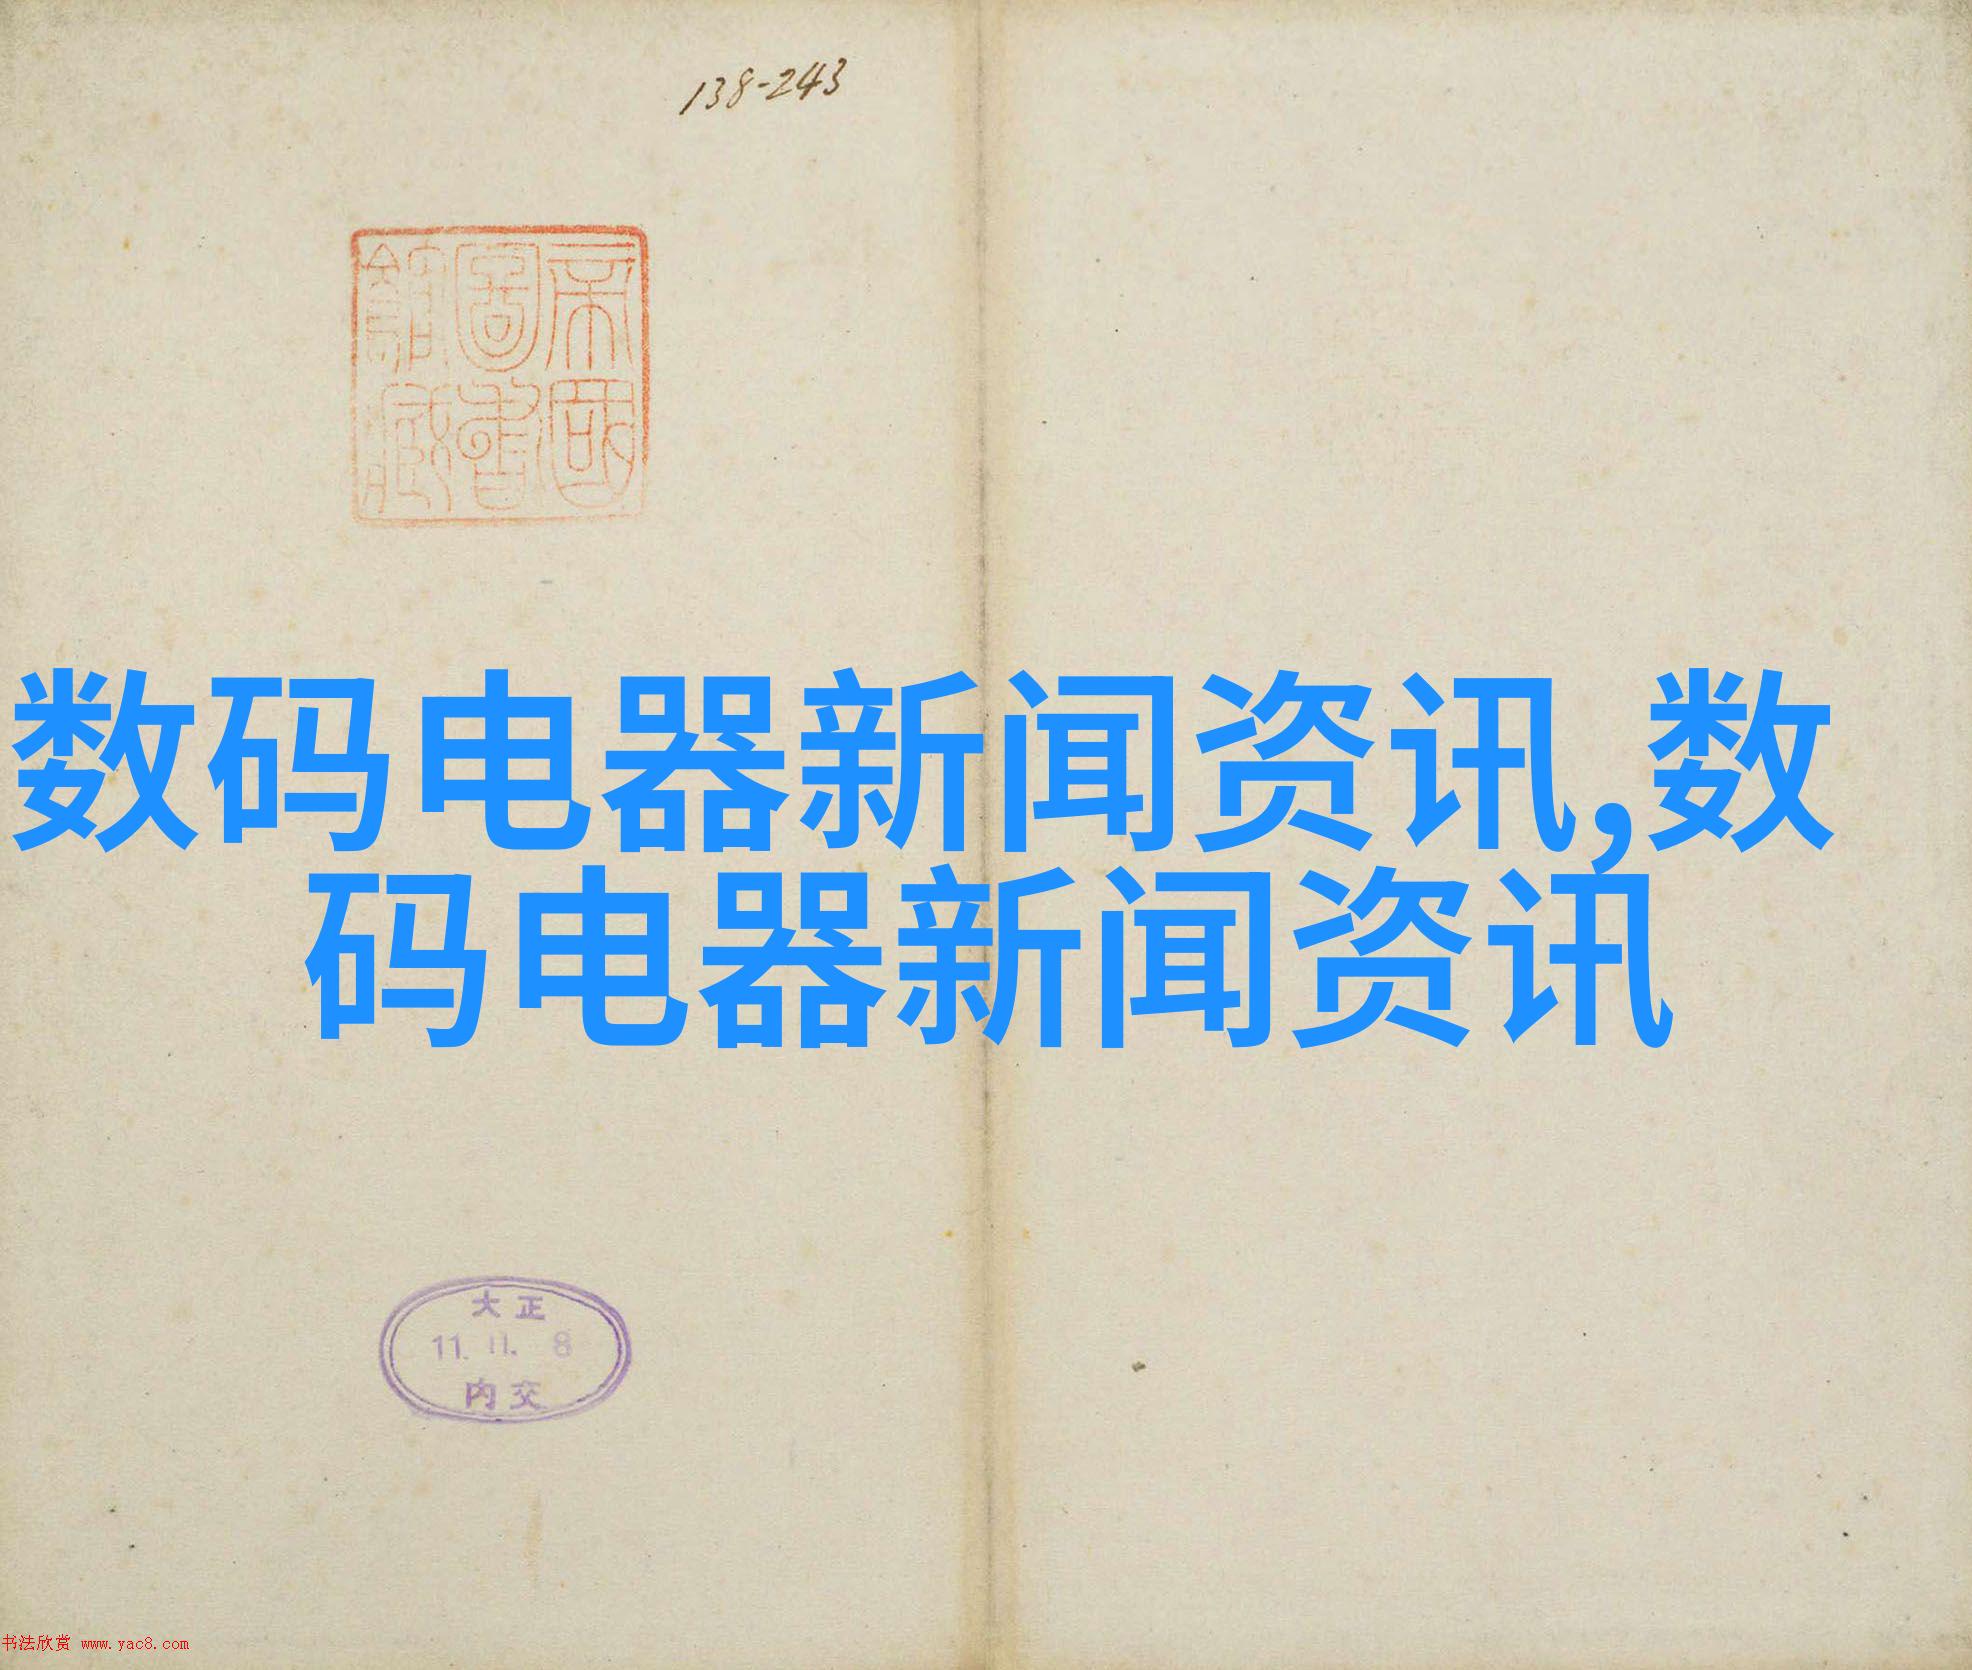 138-243
帝國
圖書
館藏
数码电器新闻资讯,数
码电器新闻资讯
大正
11. 11. 8
内交
书法欣赏 www.yac8.com